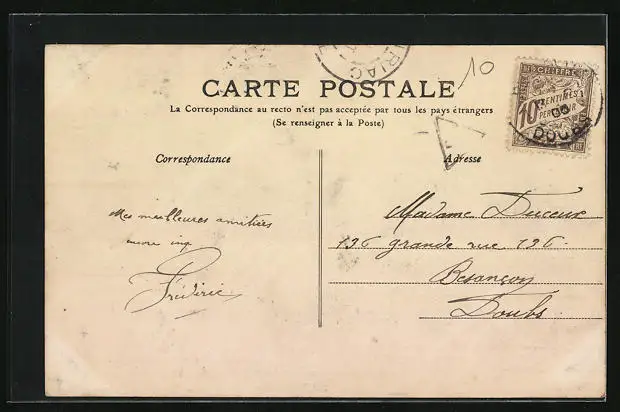 TRIAC
10
CARTE POSTALE
CHIFFRE
10 CENTIMES
PERCEVOIR
DOUBS
La Correspondance au recto n'est pas acceptée par tous les pays étrangers
(Se renseigner à la Poste)
Correspondance
Adresse
Mes meilleures amitiés
Frédéric
Madame Duceux
136 grande rue 136
Besançon
Doubs